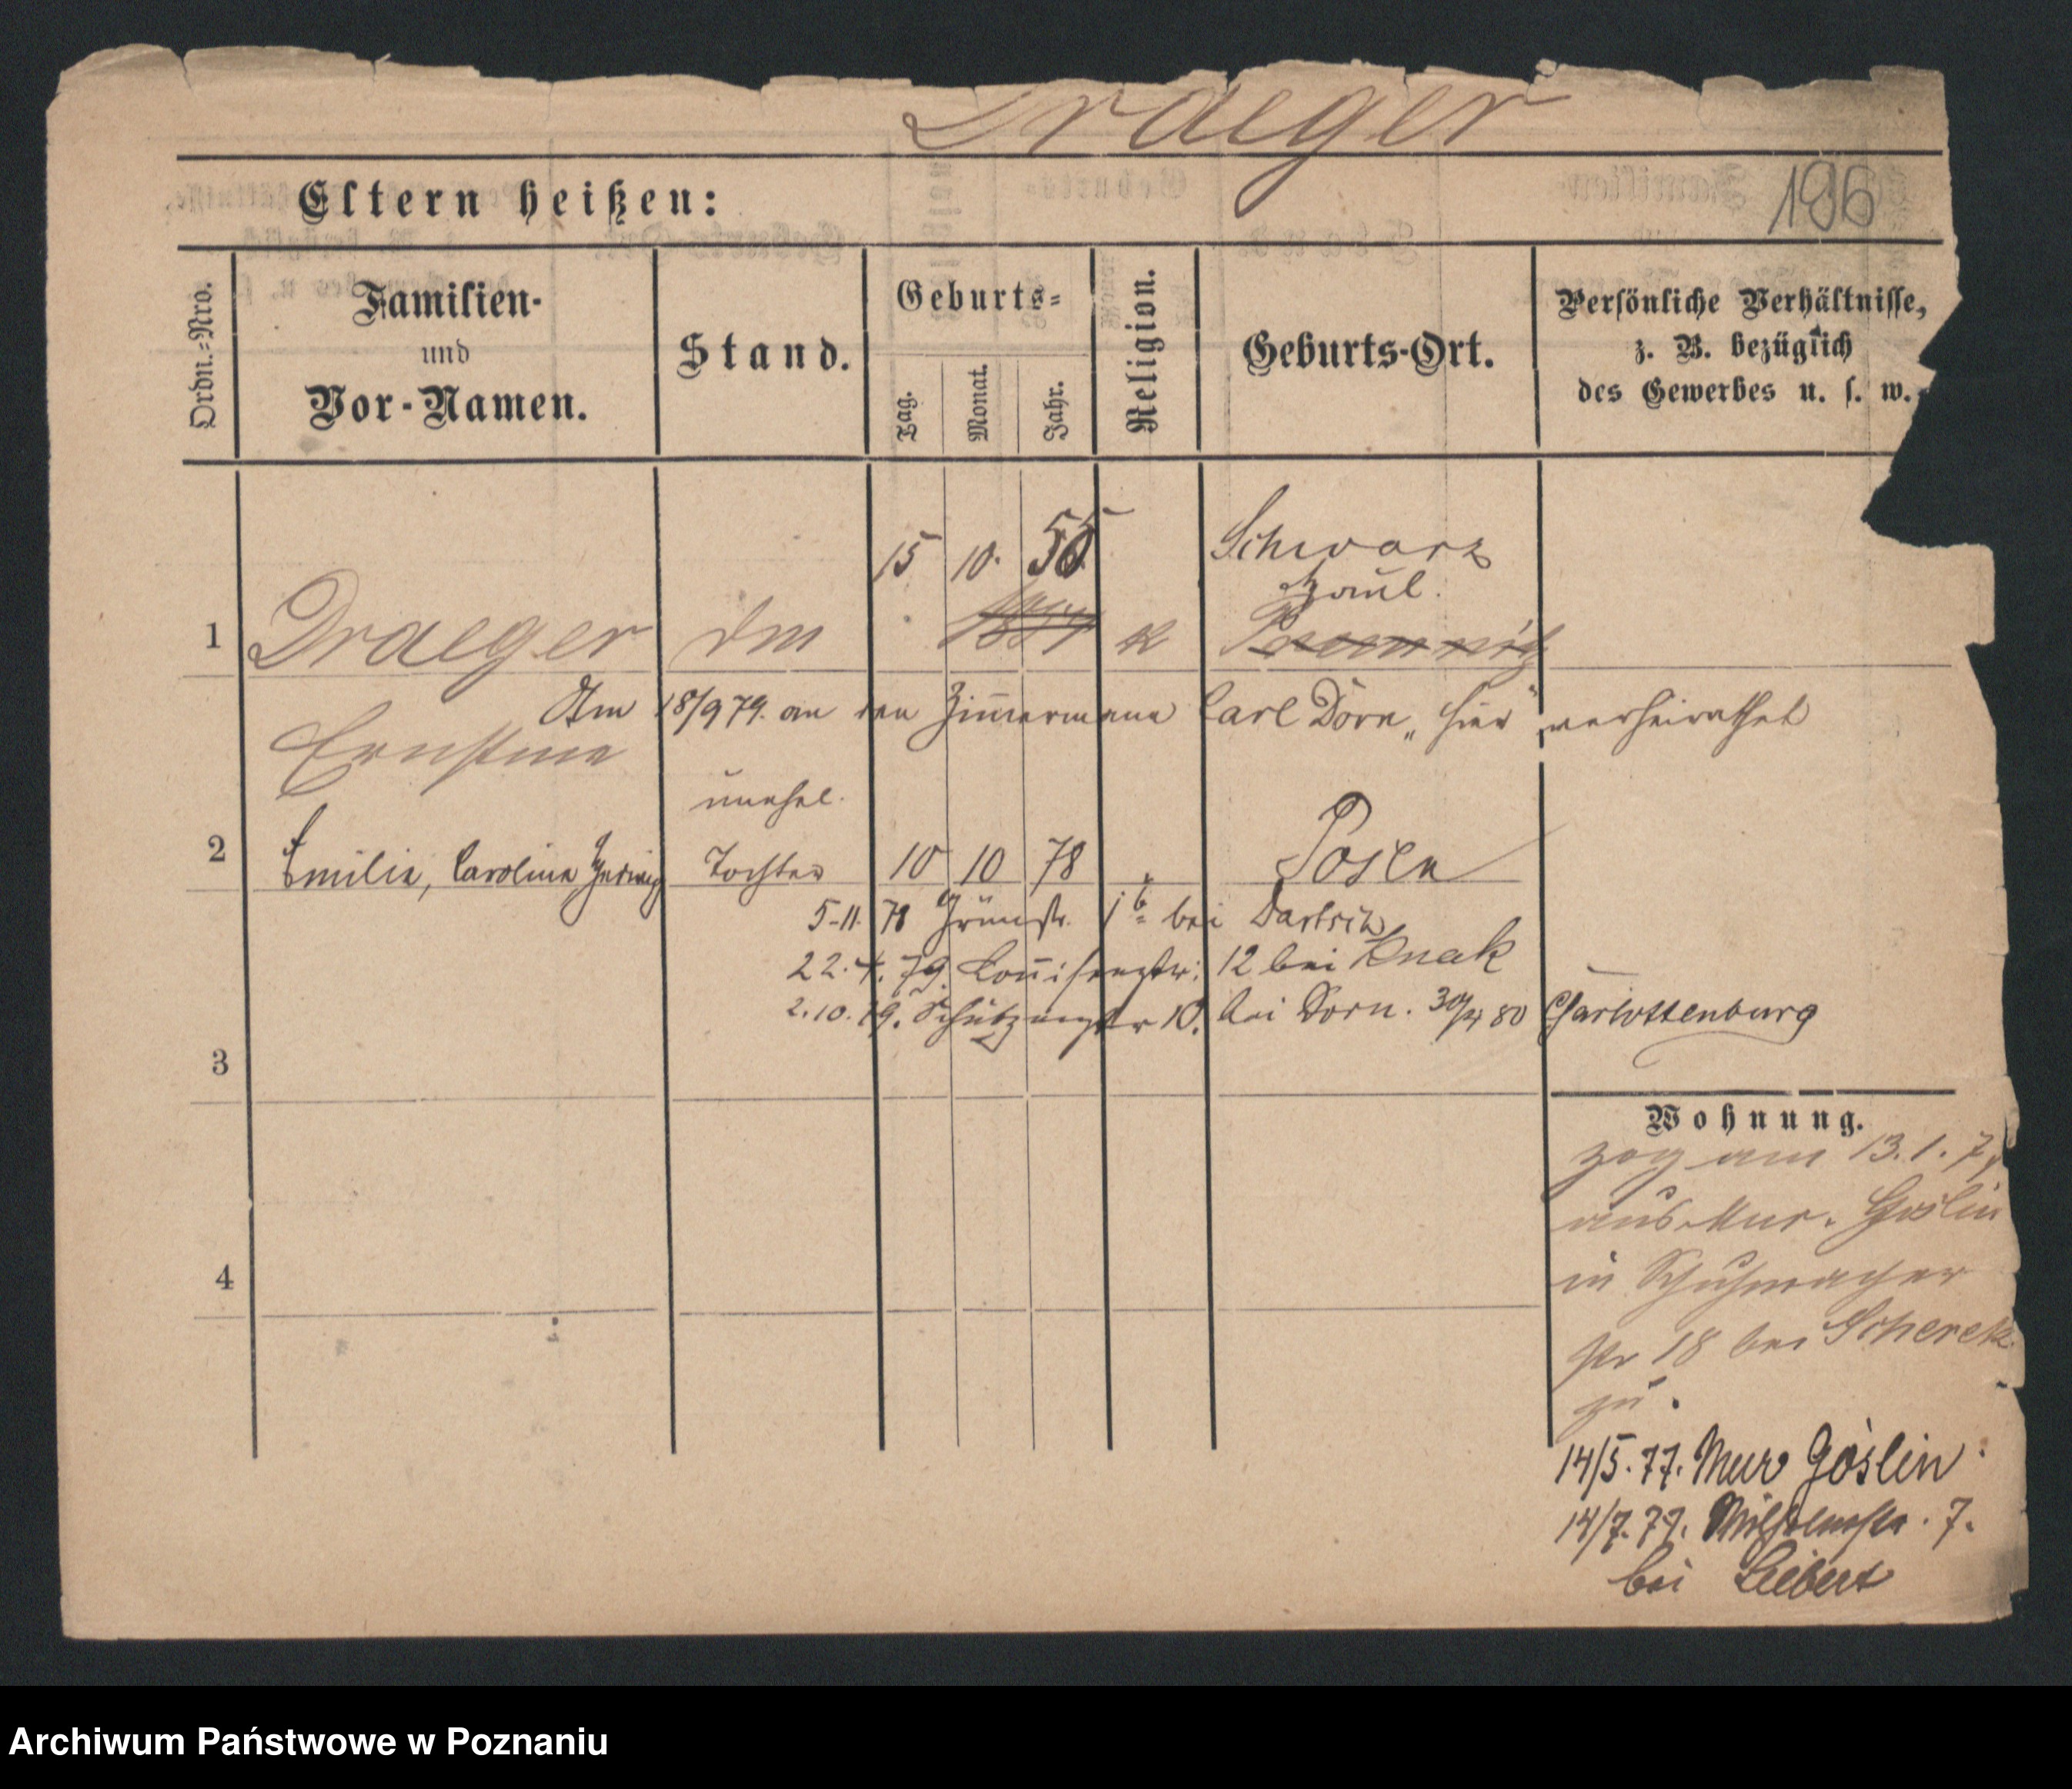 Draeger
196
Eltern heißen:
Ordn.=Nro.
Familien-
und
Vor-Namen.
Stand.
Geburts=
Tag.
Monat.
Jahr.
Religion.
Geburts-Ort.
Persönliche Verhältnisse,
z. B. bezüglich
des Gewerbes u. s. w.
15 10. 55 Schwarz
haul.
1 Draeger k
Am 18/9 79. an den Zimmermann Carl Dorn „hier“ verheirathet
Ernstine
unehel.
2 Emilie, Caroline Hedwig Tochter 10 10 78 Posen
5.11.78 Grünstr. bei Bartsch
22.4.79. Louisenstr: 12 bei Knak
2.10.79. Schützenstr 10. bei Dorn. 30/4 80 Charlottenburg
3
Wohnung.
zog am 13.1.7
aus Mur. Goslin
in Schuhmacher
4
str 18 bei Scherek
zu.
14/5.77. Mur Goslin
14/7.77. Wilhelmstr. 7.
bei Liebert
Archiwum Państwowe w Poznaniu